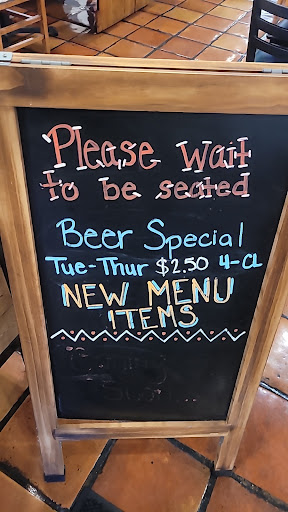 Please wait
to be seated
Beer Special
Tue-Thur $2.50 4-CL
NEW MENU
ITEMS